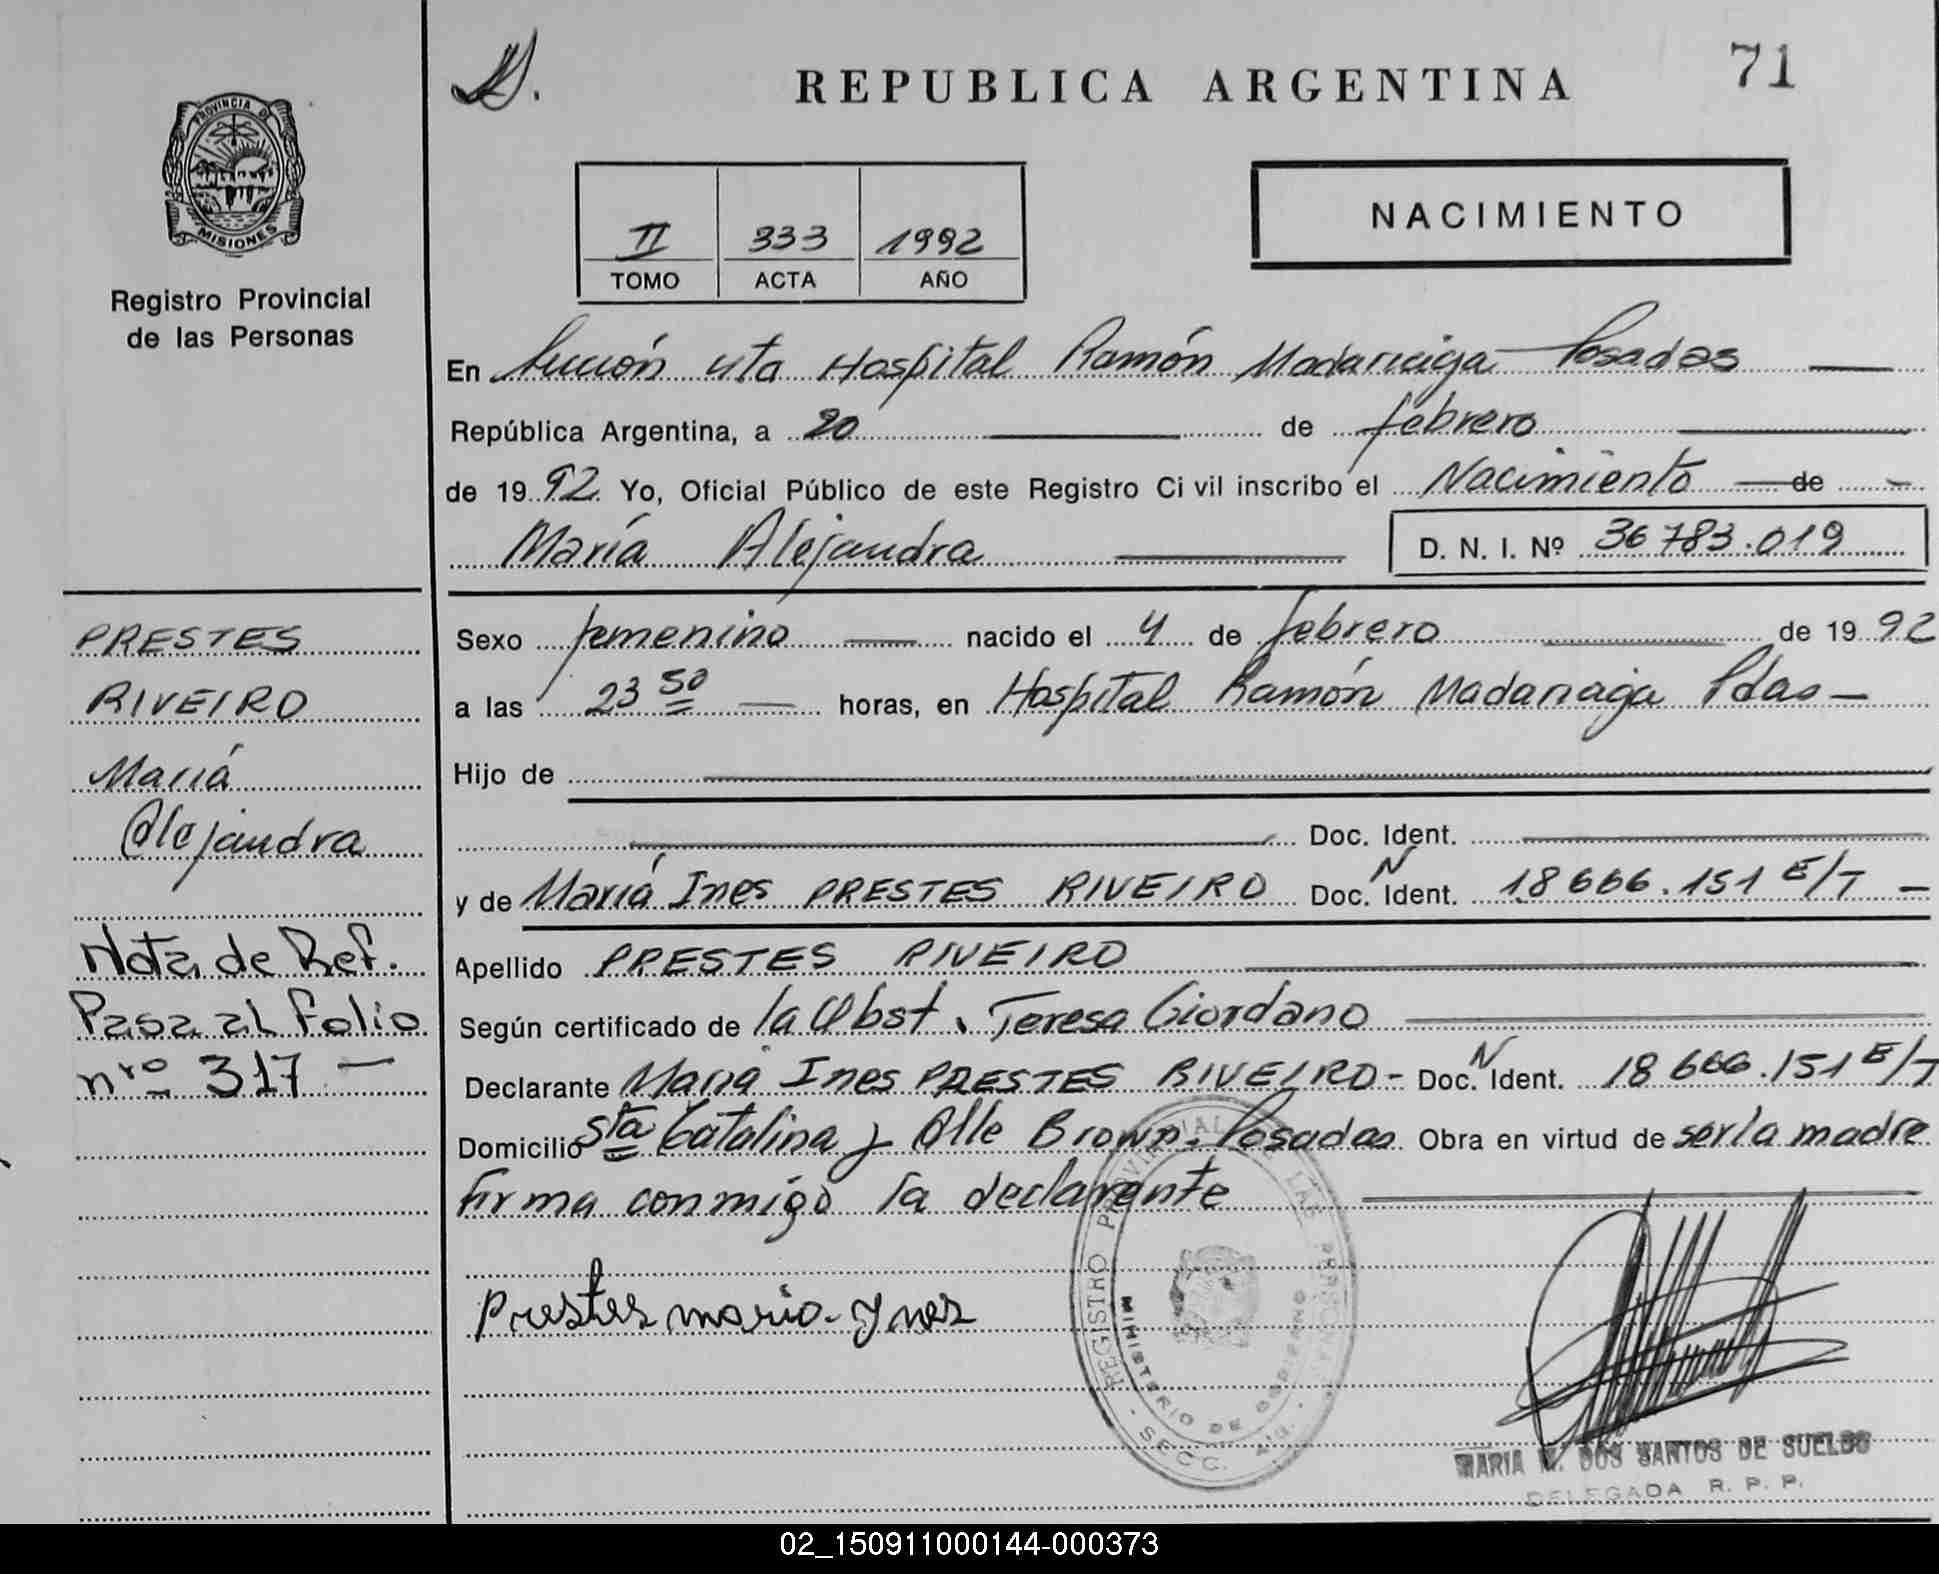 71
REPUBLICA ARGENTINA
PROVINCIA DE
MISIONES
Registro Provincial
de las Personas
II 333 1992
TOMO ACTA AÑO
NACIMIENTO
En Sección 4ta Hospital Ramón Madariaga Posadas
República Argentina, a 20 de febrero
de 1992. Yo, Oficial Público de este Registro Civil inscribo el Nacimiento de
María Alejandra D. N. I. Nº 36783.019
PRESTES
RIVEIRO
María
Alejandra
Nota de Ref.
Pasa al Folio
nro 317 -
Sexo femenino nacido el 4 de febrero de 1992
a las 23 50 horas, en Hospital Ramón Madariaga Pdas -
Hijo de
Doc. Ident.
y de María Ines PRESTES RIVEIRO Doc. N Ident. 18.666.151 E/T -
Apellido PRESTES RIVEIRO
Según certificado de la Obst. Teresa Giordano
Declarante María Ines PRESTES RIVEIRO - Doc. N Ident. 18666.151 E/T
Domicilio Sta Catalina y Alle Brown. Posadas Obra en virtud de ser la madre
firma conmigo la declarante
Prestes maria Ynes
REGISTRO PROVINCIAL DE LAS PERSONAS
MINISTERIO DE GOBIERNO
SECC.
MARIA M. DOS SANTOS DE SUELDO
DELEGADA R. P. P.
02_150911000144-000373